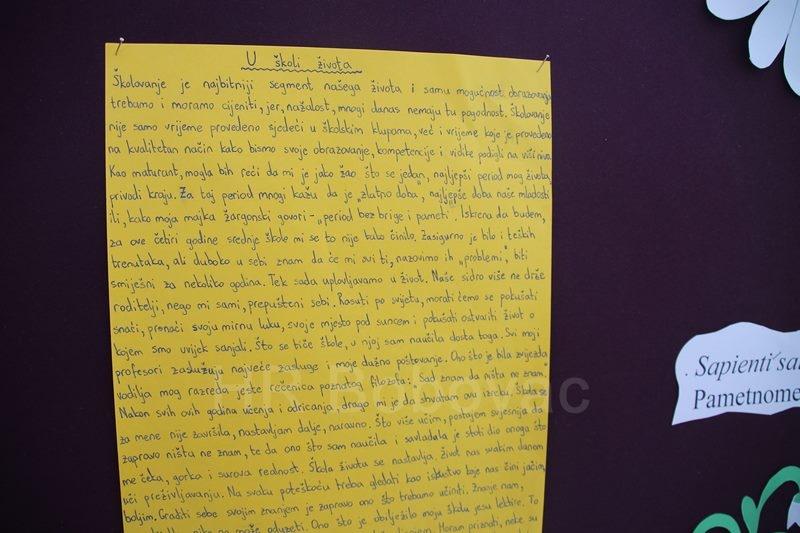 U školi života
Školovanje je najbitniji segment našega života i samu mogućnost obrazovanja
trebamo i moramo cijeniti, jer, nažalost, mnogi danas nemaju tu pogodnost. Školovanje
nije samo vrijeme provedeno sjedeći u školskim klupama, već i vrijeme koje je provedeno
na kvalitetan način kako bismo svoje obrazovanje, kompetencije i vidike podigli na viši nivo.
Kao maturant, mogla bih reći da mi je jako žao što se jedan, najljepši period mog života,
privodi kraju. Za taj period mnogi kažu da je „zlatno doba", najljepše doba naše mladosti
ili, kako moja majka žargonski govori - „period bez brige i pameti". Iskrena da budem,
za ove četiri godine srednje škole mi se to nije tako činilo. Zasigurno je bilo i teških
trenutaka, ali duboko u sebi znam da će mi svi ti, nazovimo ih „problemi", biti
smiješni za nekoliko godina. Tek sada uplovljavamo u život. Naše sidro više ne drže
roditelji, nego mi sami, prepušteni sebi. Rasuti po svijetu, morati ćemo se pokušati
snaći, pronaći svoju mirnu luku, svoje mjesto pod suncem i pokušati ostvariti život o
kojem smo uvijek sanjali. Što se tiče škole, u njoj sam naučila dosta toga. Svi moji
profesori zaslužuju najveće zasluge i moje dužno poštovanje. Ono što je bila zvijezda
vodilja mog razreda jeste rečenica poznatog filozofa: „Sad znam da ništa ne znam."
Nakon svih ovih godina učenja i odricanja, drago mi je da shvatam ovu izreku. Škola se
za mene nije završila, nastavljam dalje, naravno. Što više učim, postajem svjesnija da
zapravo ništa ne znam, te da ono što sam naučila i savladala je stoti dio onoga što
me čeka, gorka i surova realnost. Škola života se nastavlja. Život nas svakim danom
uči preživljavanju. Na svaku poteškoću treba gledati kao iskustvo koje nas čini jačim,
boljim. Graditi sebe svojim znanjem je zapravo ono što trebamo učiniti. Znanje nam,
nitko ne može oduzeti. Ono što je obilježilo moju školu jesu lektire. To
Moram priznati, neke su
Sapienti sa
Pametnome
HR Kobovac